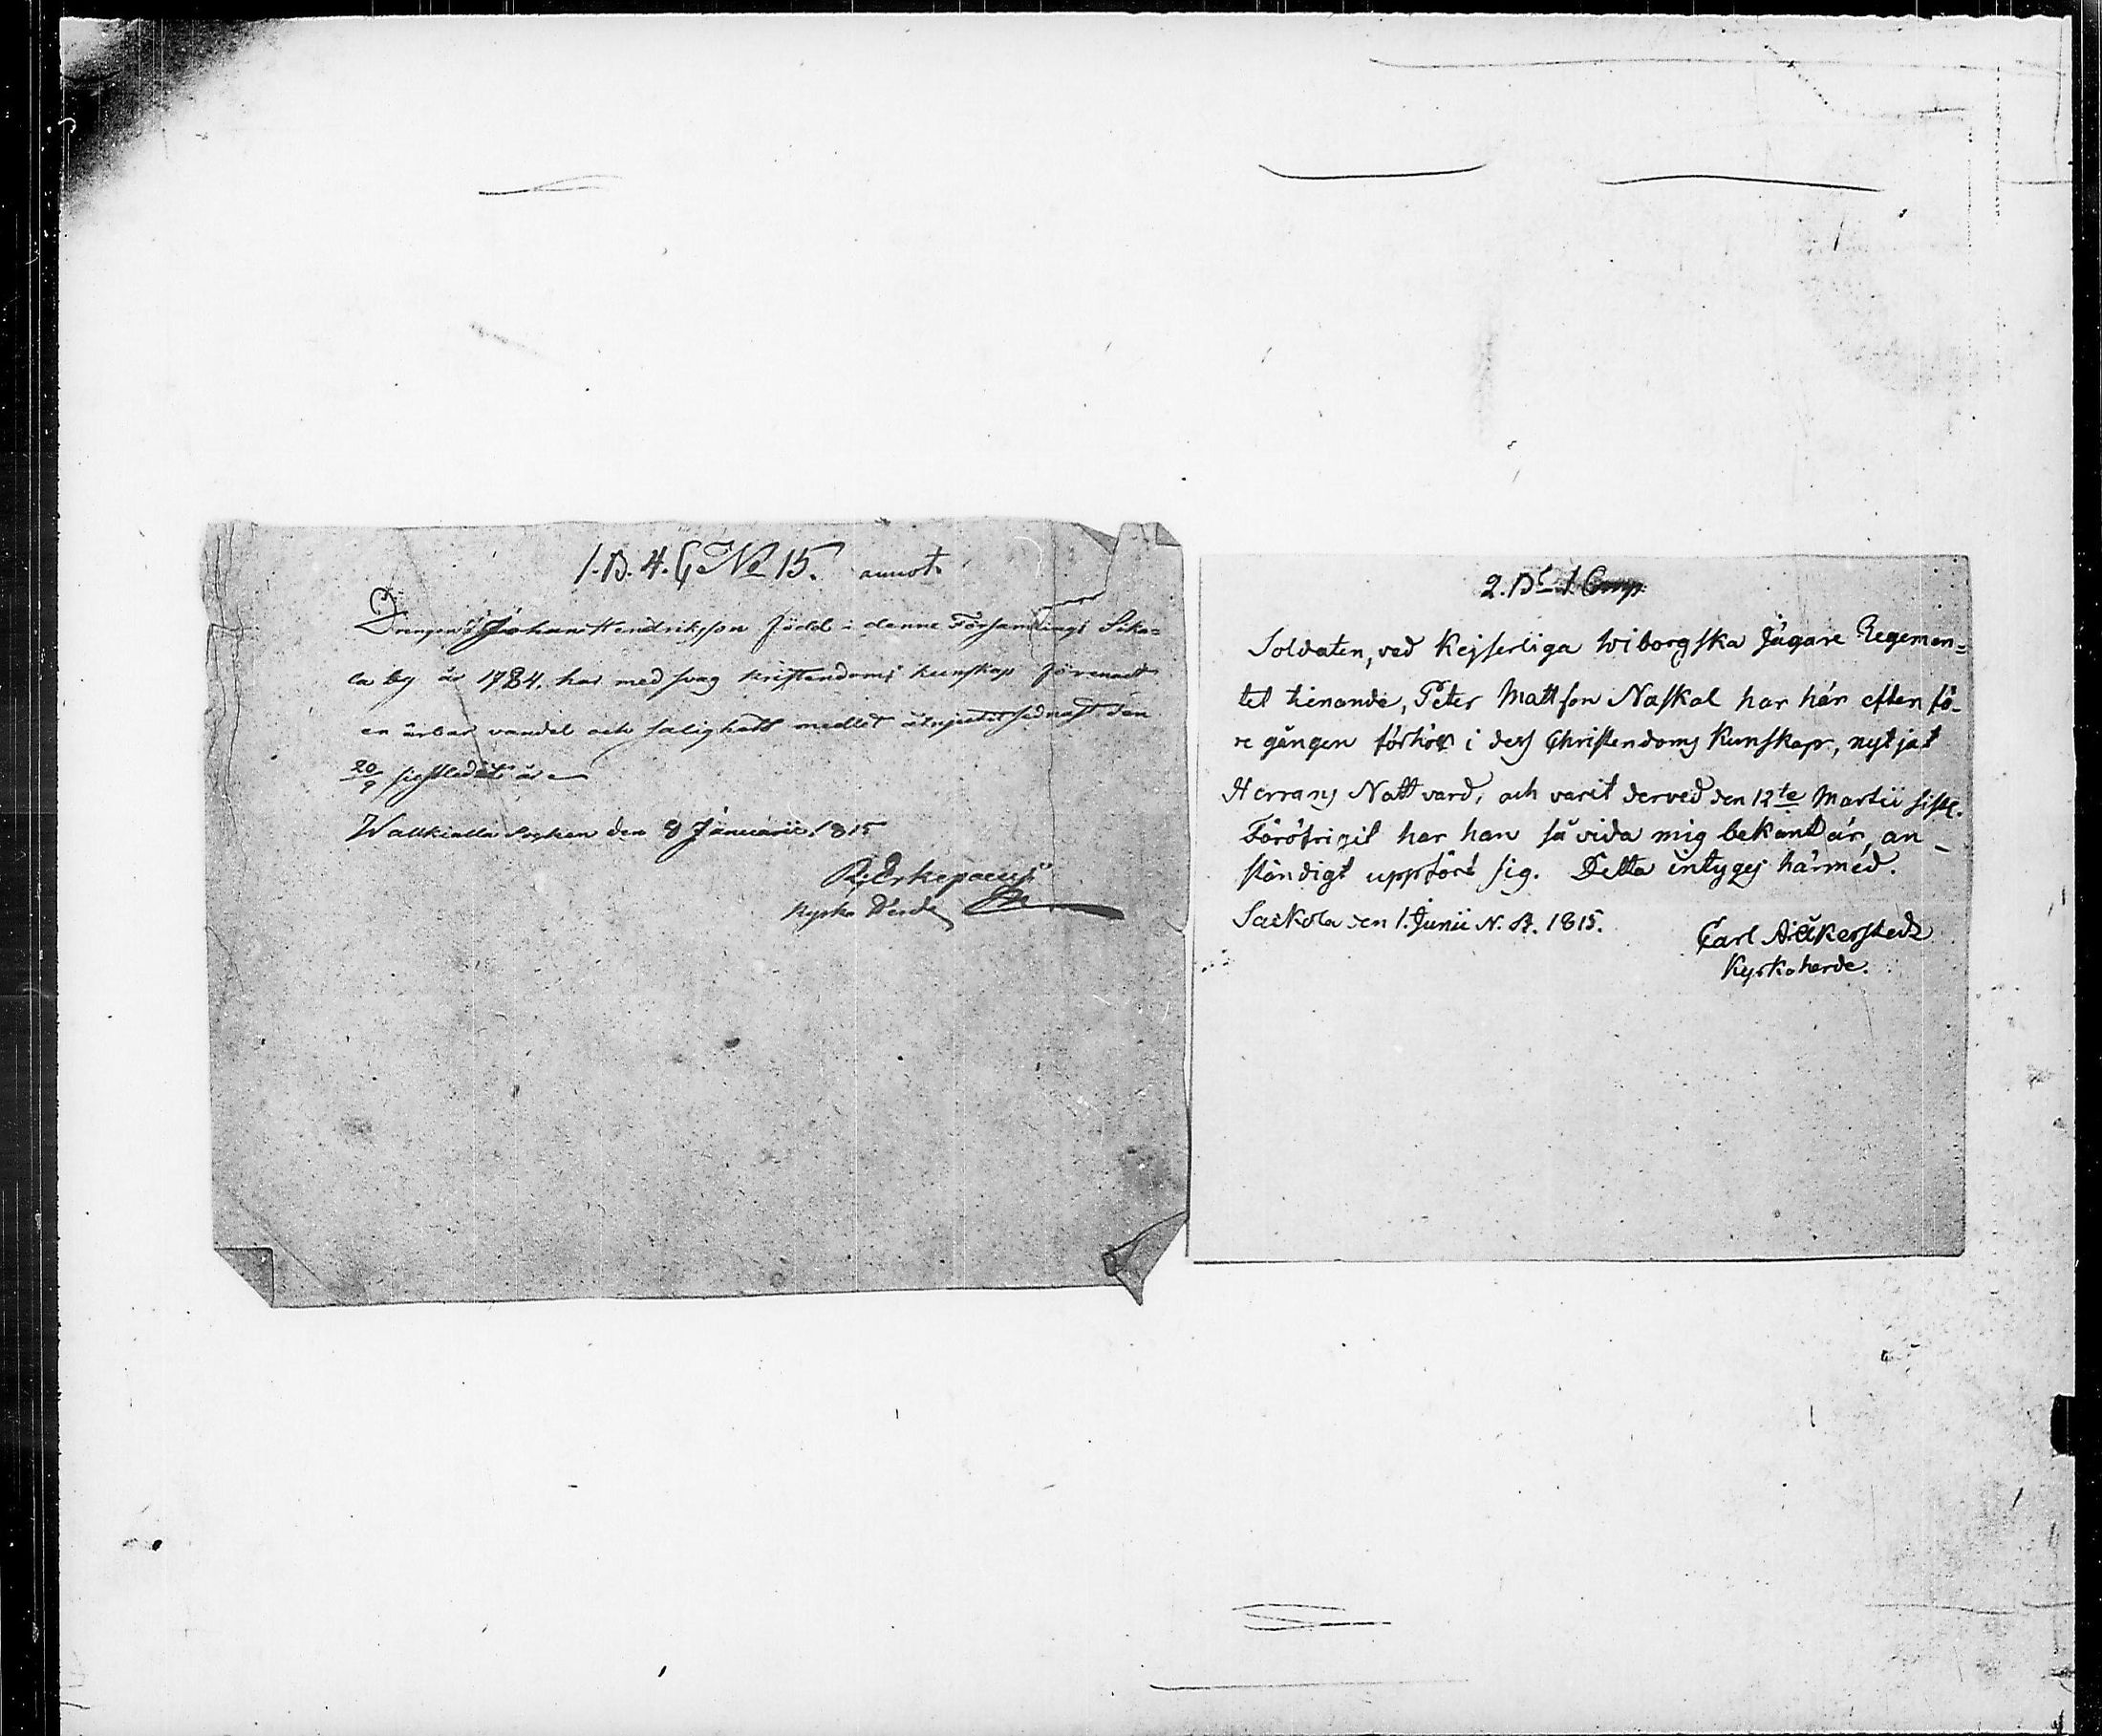 1. B. 4. C. No 15. annot.
Drengen Johan Hendriksson född i denne Församlings Sika=
la by år 1784. har med svag kristendoms kunskap förenat
en ärbar vandel och salighets medlet åtnjutit sednast den
20/9 sistledit år
Walkiala Socken den 8 Januarii 1815
Kyrko Herde
2. Bt 1 Comp
Soldaten, ved Kejserliga Wiborgska Jägare Regemen=
tet tienande, Peter Mattson Naskal har här efter fö-
re gången förhör i dess Christendoms Kunskap, nytjat
Herrans Nattvard, och varit derved den 12te Martii sistl.
Föröfrigit har han så vida mig bekant är, an-
ständigt uppfört sig. Detta intyges härmed.
Sackola den 1. Junii N. St. 1815.
Carl Aākerstedt
Kyrkoherde.